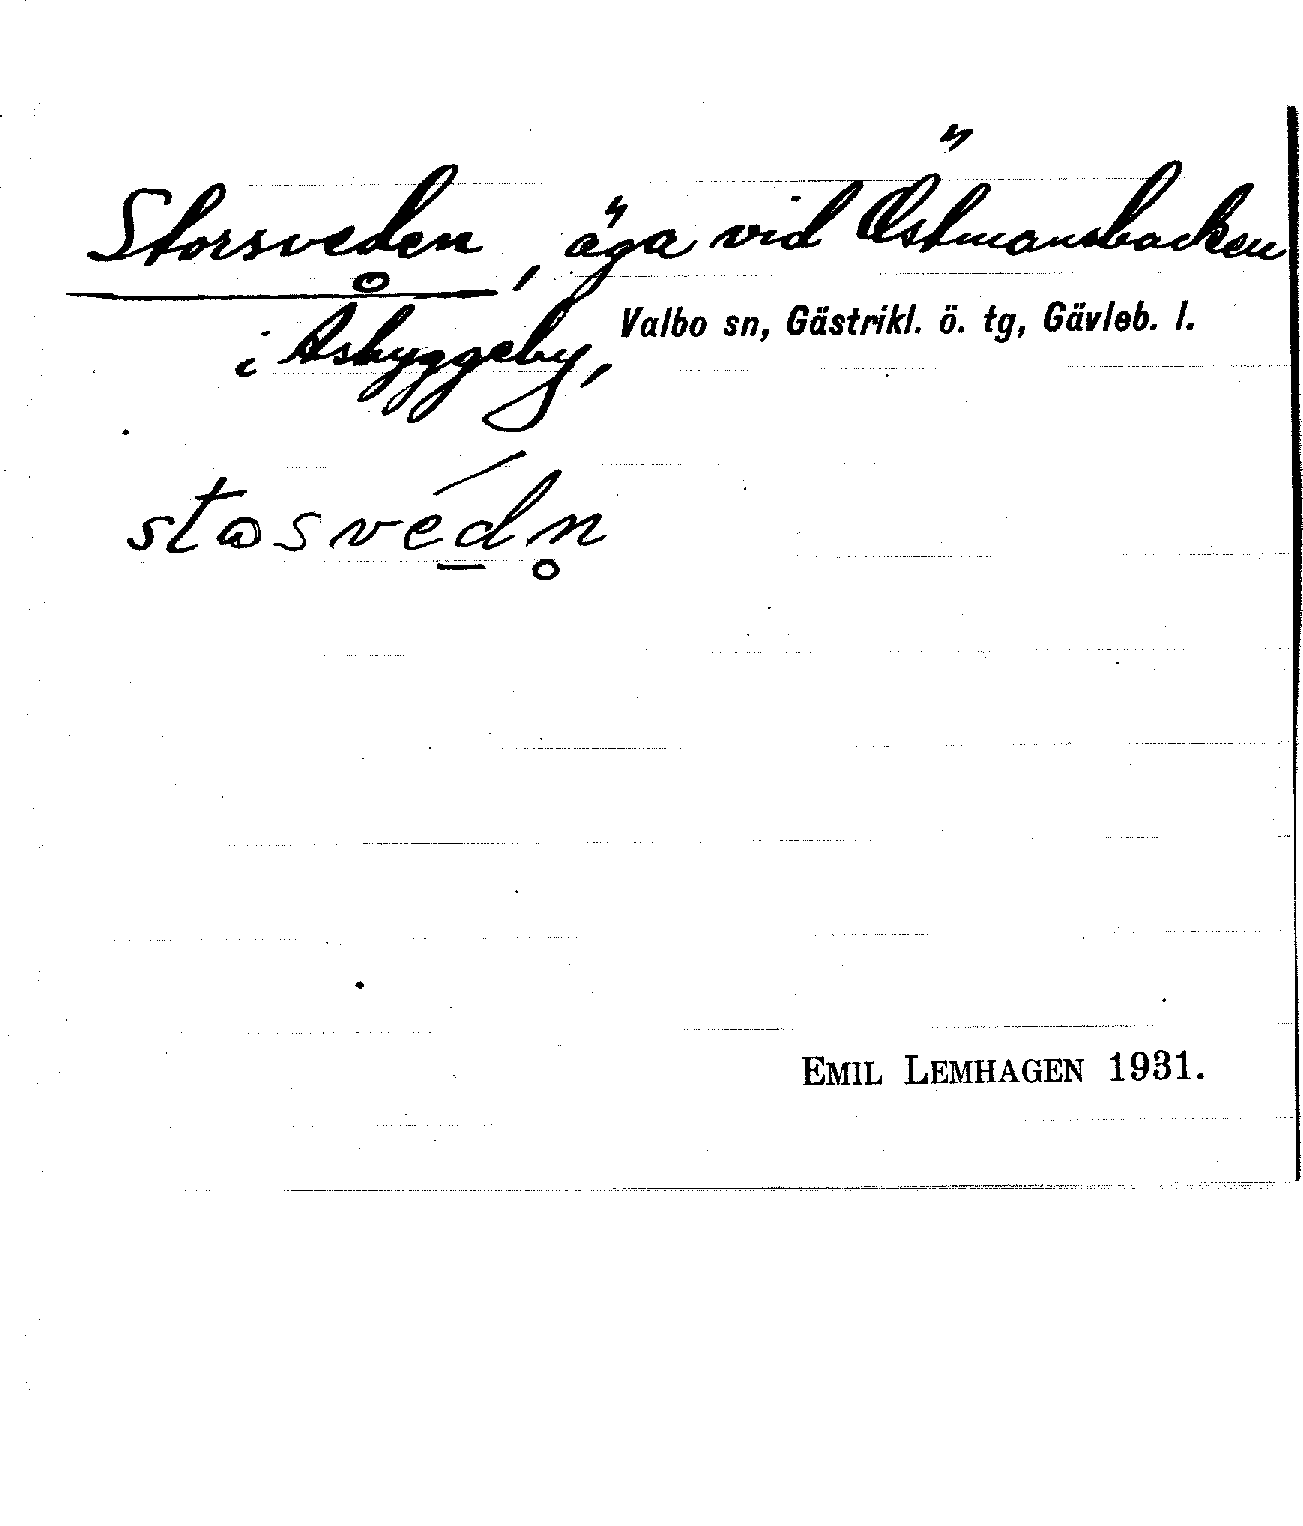 Storsveden, äga vid Östmansbacken
i Åsbyggeby, Valbo sn, Gästrikl. ö. tg, Gävleb. l.
stɷsvédn̥
EMIL LEMHAGEN 1931.